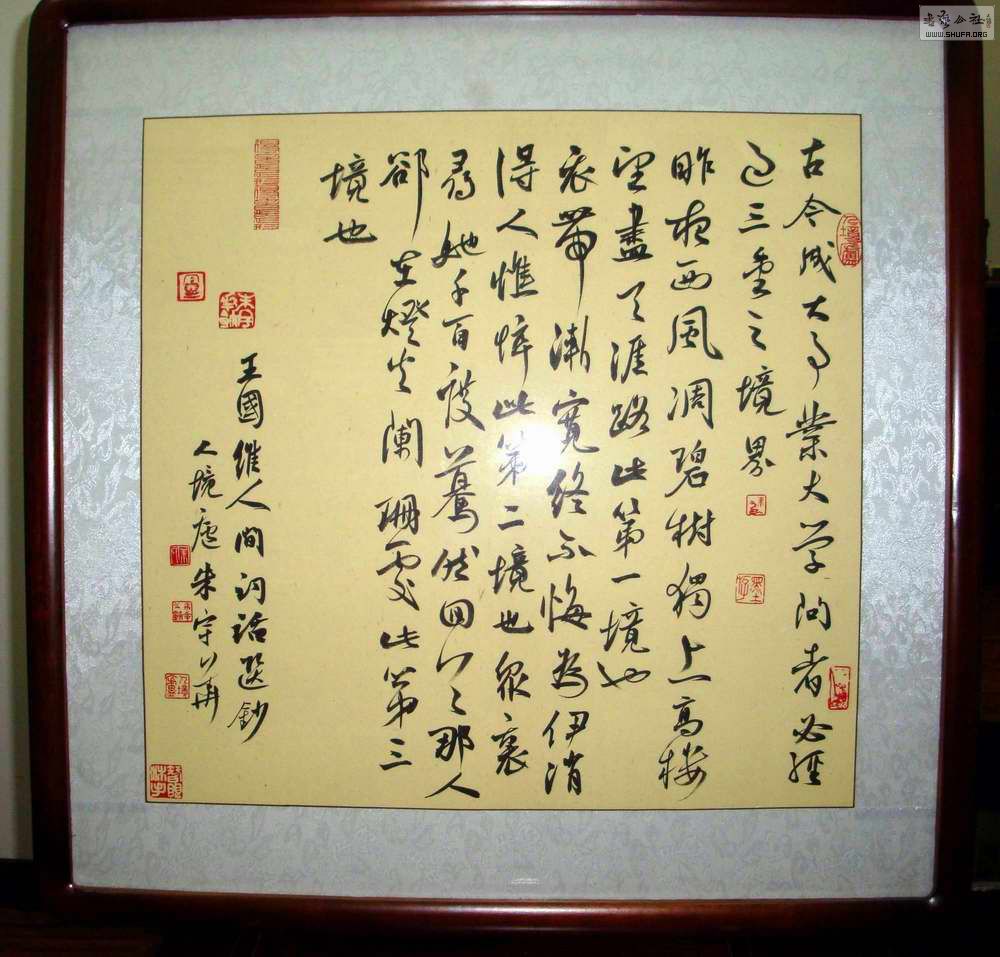 古今成大事業大学问者必經
過三重之境界
昨夜西風凋碧樹獨上高樓
望盡天涯路此第一境也
衣帶漸寬終不悔為伊消
得人憔悴此第二境也眾裏
尋她千百度驀然回首那人
卻在燈火闌珊處此第三
境也
王國維人间词话選鈔
人境廬朱守
書藝公社
WWW.SHUFA.ORG